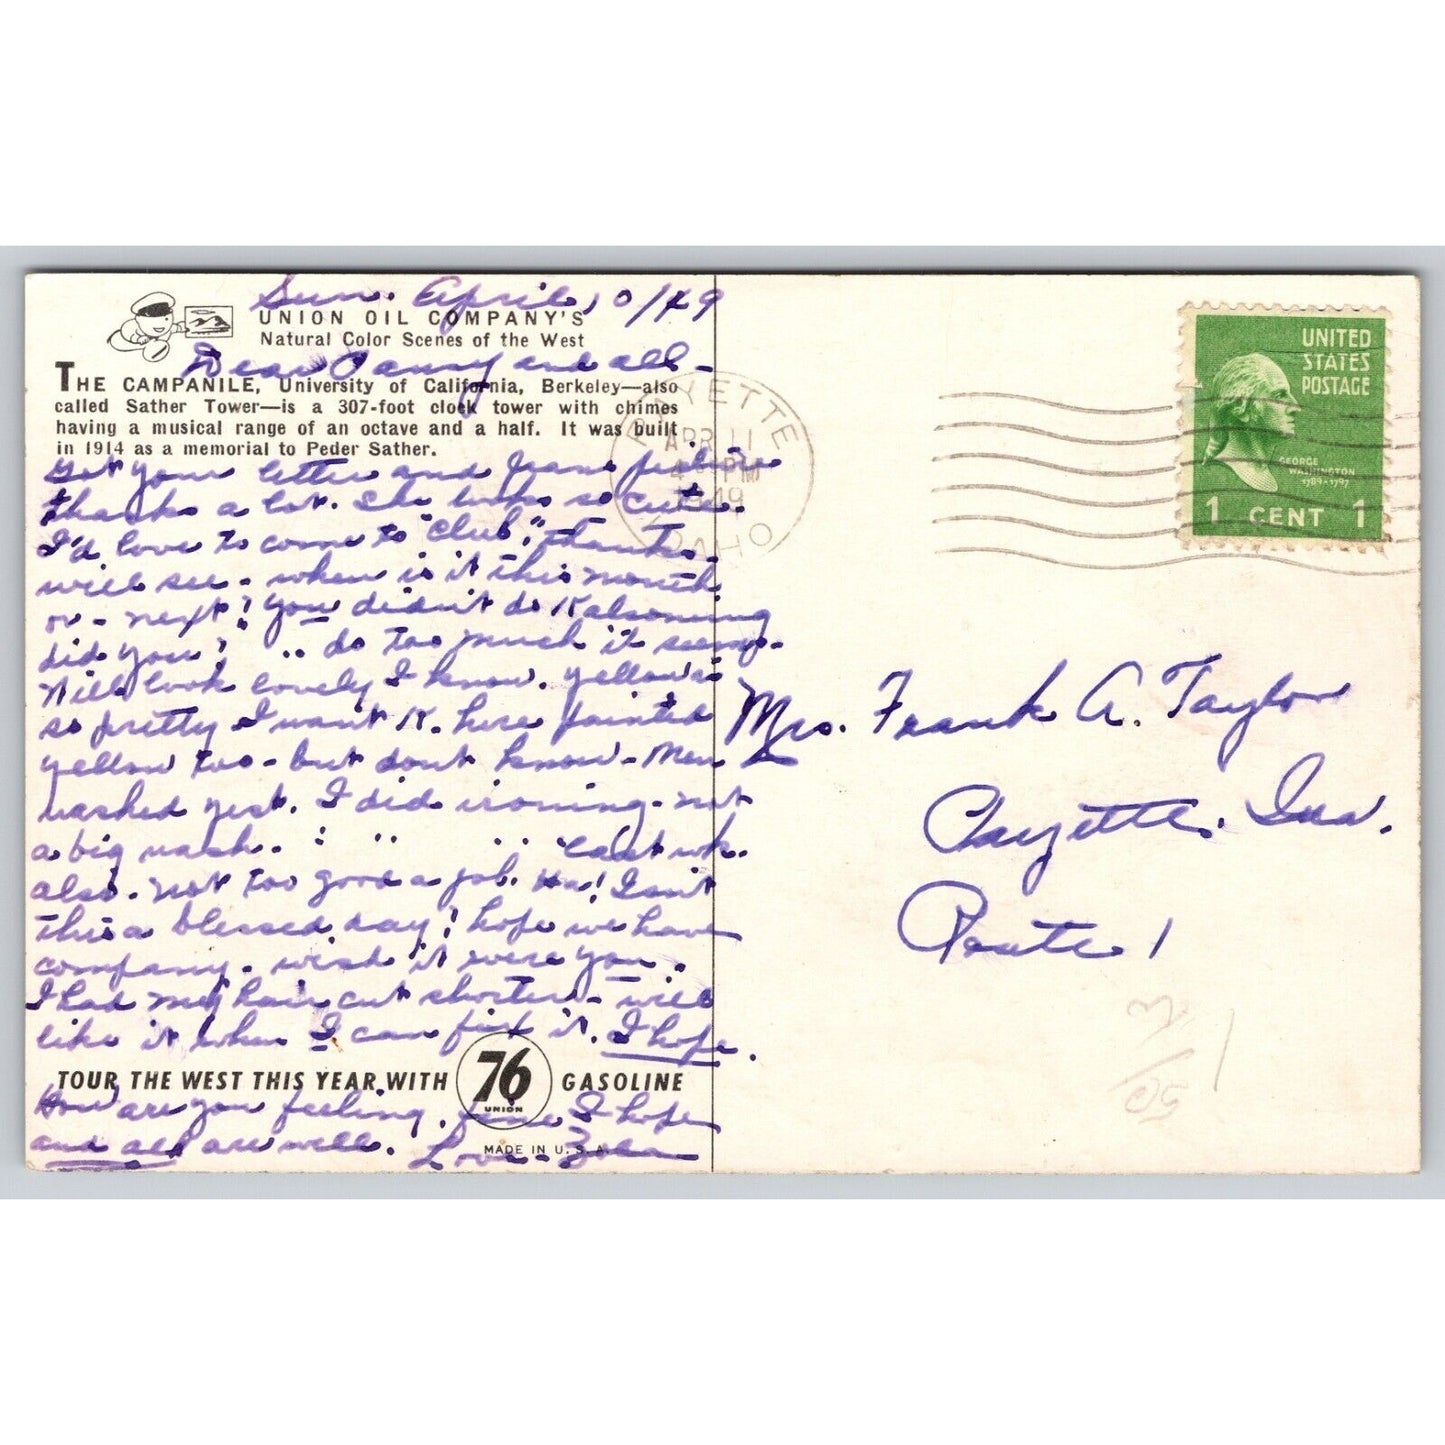 Sun. April 10/49
UNION OIL COMPANY'S
Natural Color Scenes of the West
Dear Fanny and all-
THE CAMPANILE, University of California, Berkeley—also
called Sather Tower—is a 307-foot clock tower with chimes
having a musical range of an octave and a half. It was built
in 1914 as a memorial to Peder Sather.
Got your letter and Jeans picture
thanks a lot. She looks so cute.
I'd love to come to "club", thanks.
will see - when is it this month
or - next? You didn't do Kalsomining
did you? " do too much it seems.
Will look lovely I know. yellow is
so pretty I want K. here painted
yellow too - but dont know - Men
washed yest. I did ironing - not
a big wash. : " " " Last wk.
also. not too good a job. Ha! Isn't
this a blessed day? hope we have
company. wish it were you.
I had my hair cut shorter - will
like it when I can fix it. I hope.
TOUR THE WEST THIS YEAR WITH 76 UNION GASOLINE
How are you feeling. fine I hope
and all are well. Love - Zola
MADE IN U.S.A.
PAYETTE
APR 11
PM
1949
IDAHO
UNITED
STATES
POSTAGE
GEORGE
WASHINGTON
1789-1797
1 CENT 1
Mrs. Frank A. Taylor
Payette, Ida.
Route 1